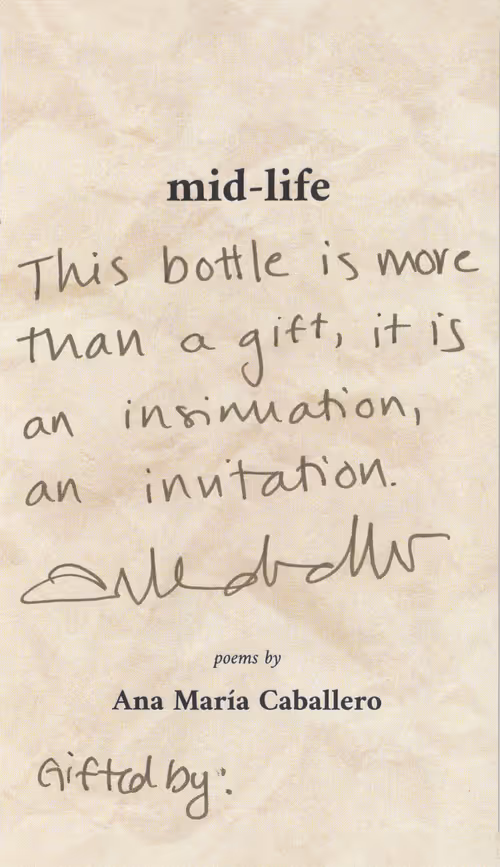 mid-life
This bottle is more
than a gift, it is
an insinuation,
an invitation.
poems by
Ana María Caballero
Gifted by: